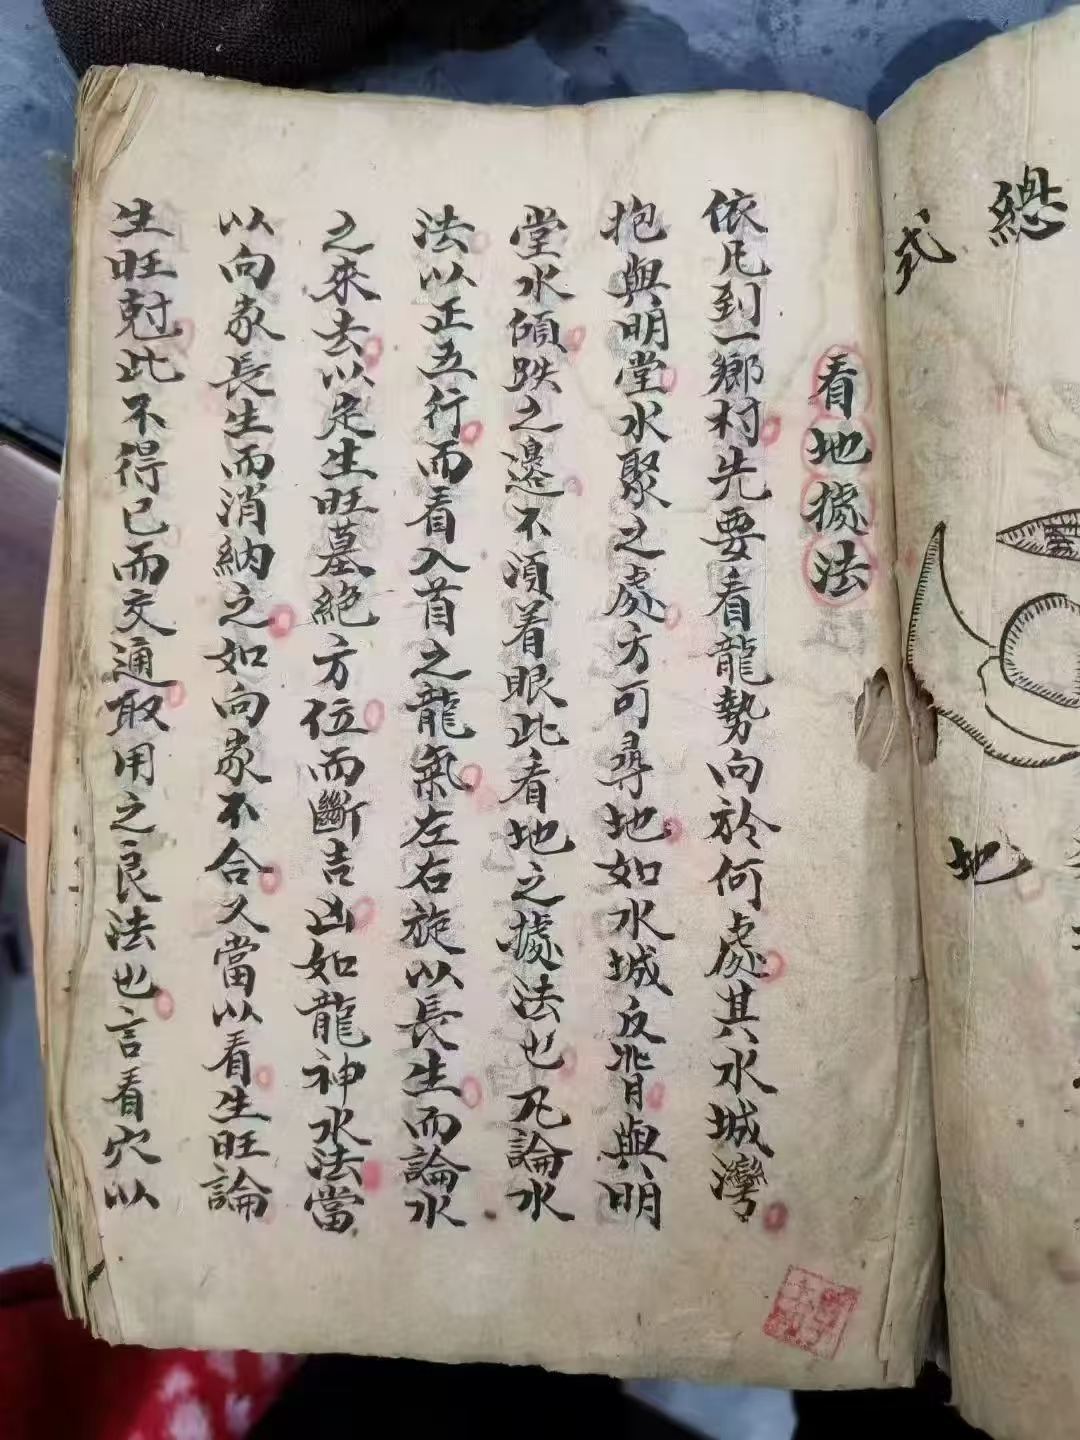 總
式
地
看地㨿法
依凡到一鄉村先要看龍勢向於何處其水城灣
抱與明堂水聚之處方可尋地如水城反背與明
堂水傾跌之邊不須着眼此看地之㨿法也凡論水
法以正五行而看入首之龍氣左右旋以長生而論水
之來去以定生旺墓絕方位而斷吉凶如龍神水法當
以向家長生而消納之如向家不合又當以看生旺論
生旺尅此不得已而交通取用之良法也言看穴以